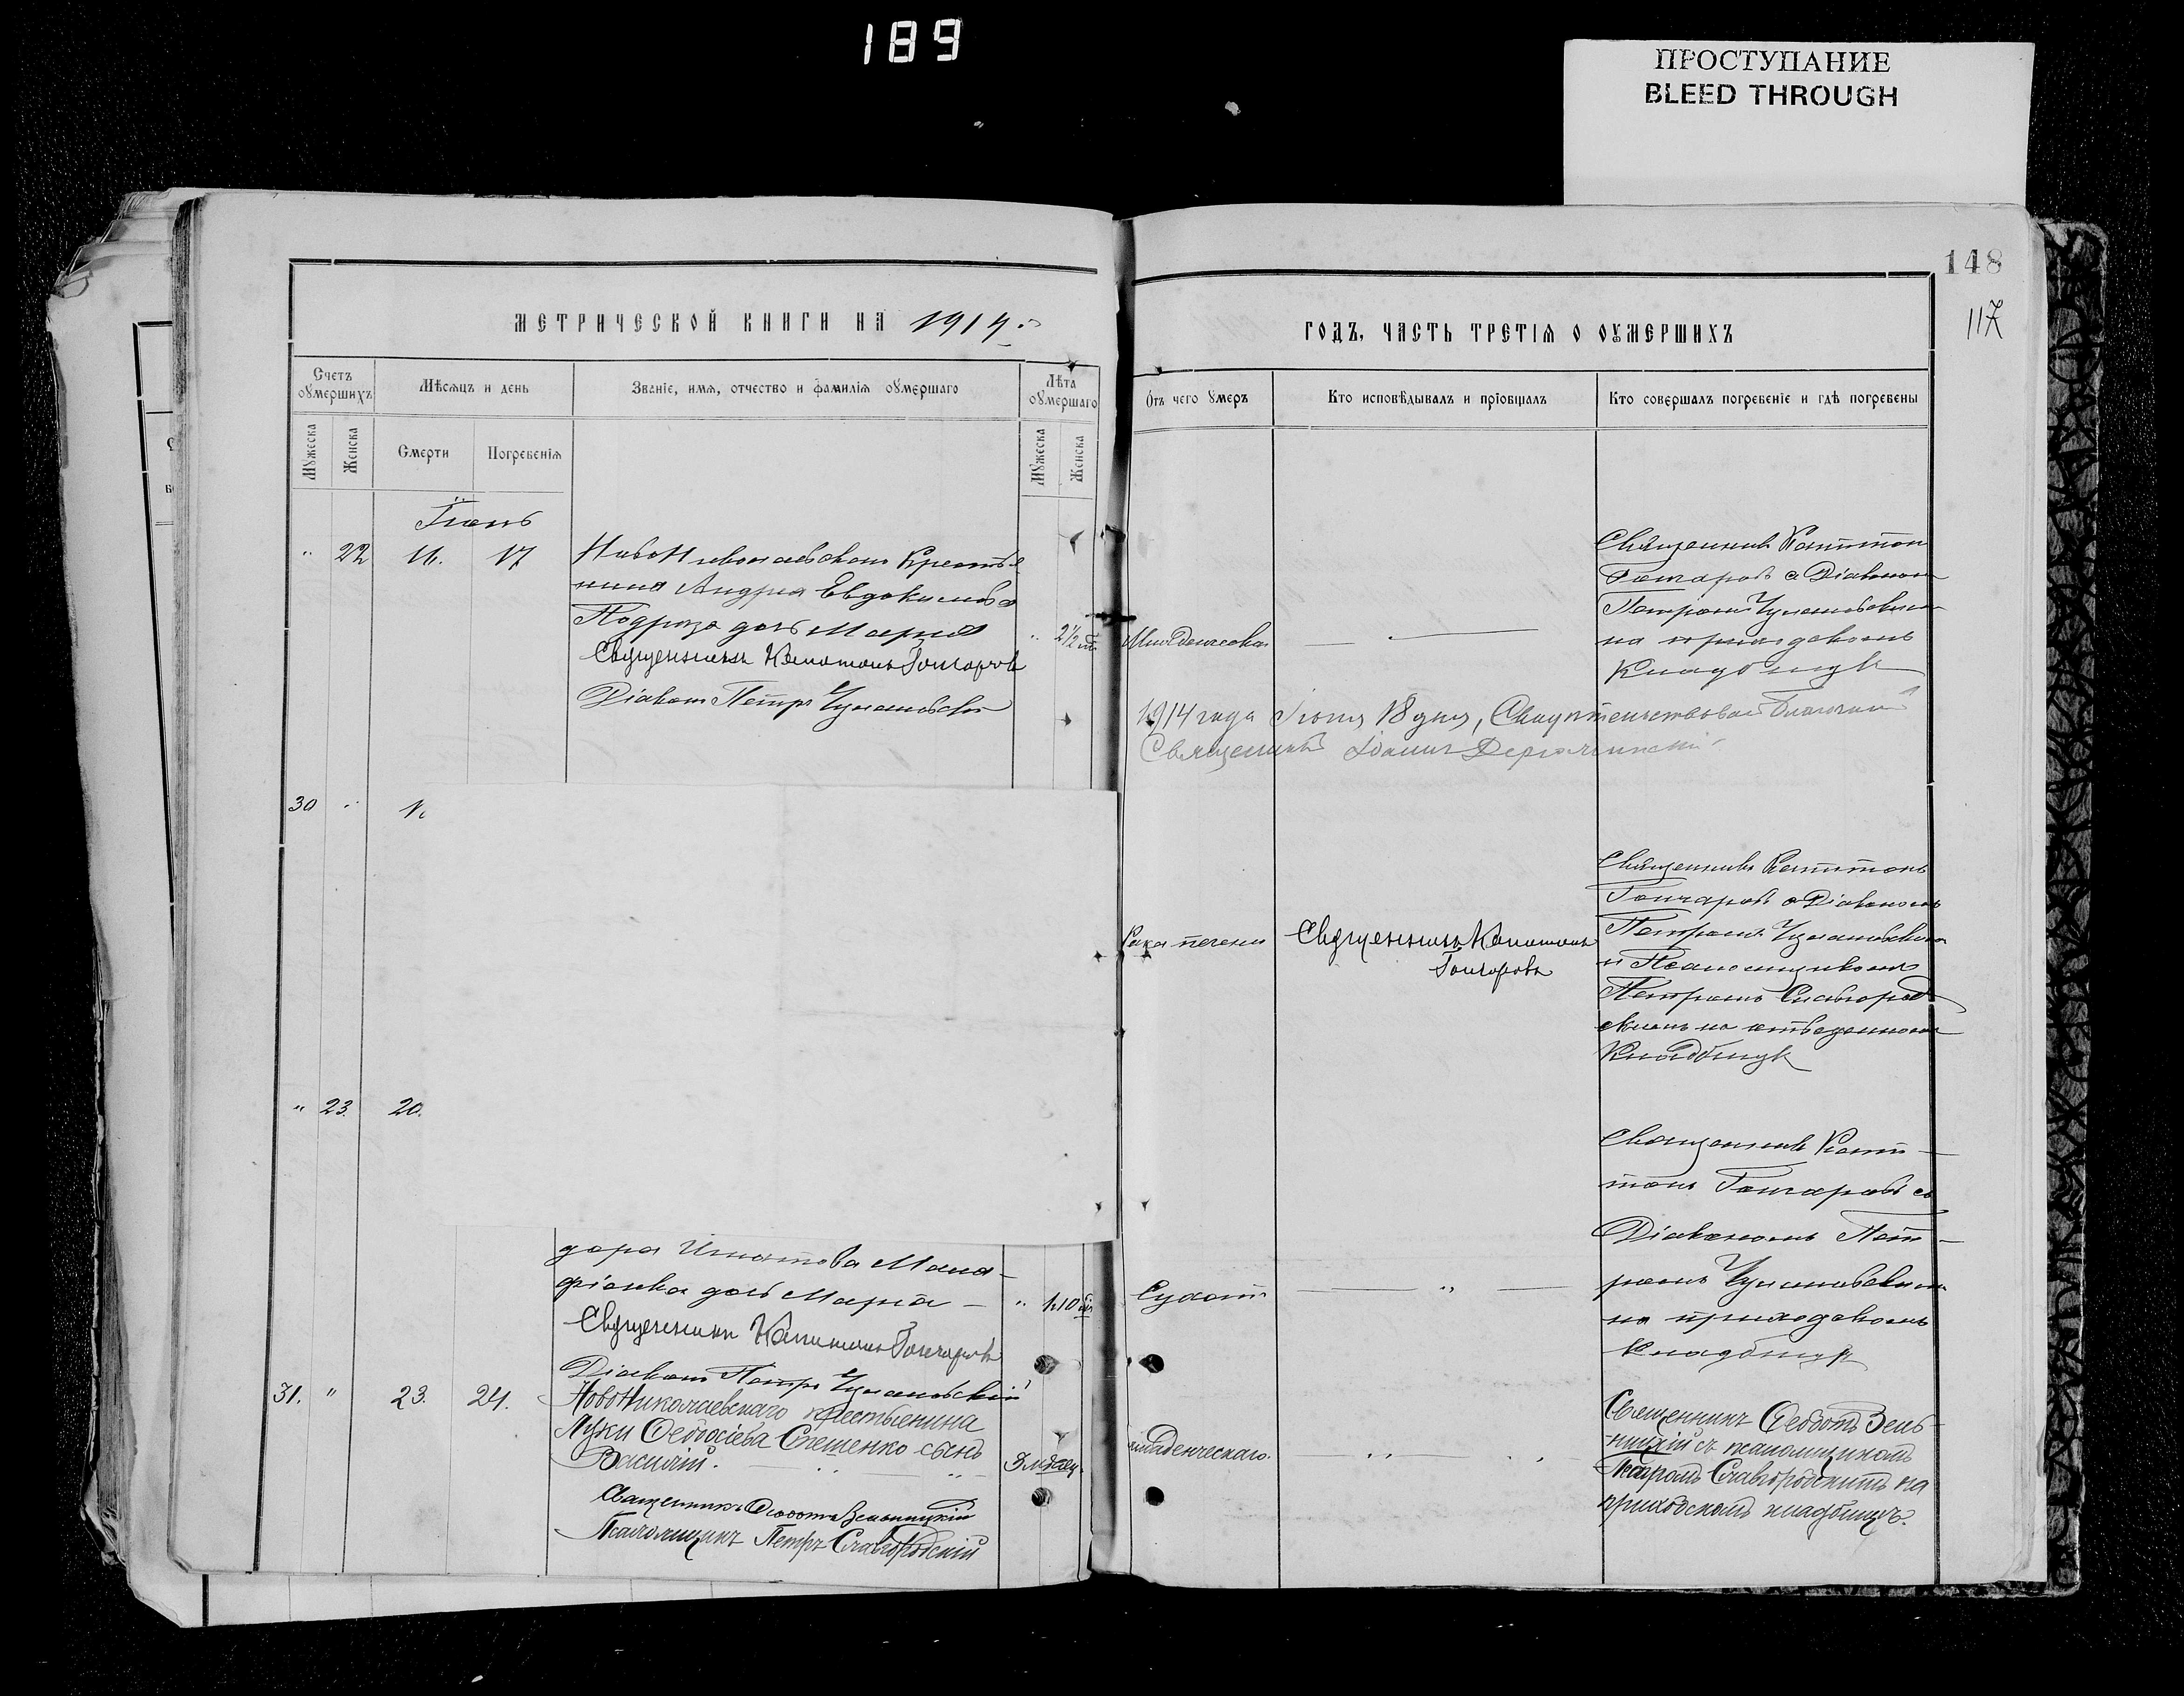 189
ПРОСТУПАНИЕ
BLEED THROUGH
148
117
МЕТРИЧЕСКОЙ КНИГИ НА 1914
ГОДЪ, ЧАСТЬ ТРЕТІѦ О ОУМЕРШИХЪ
Счетъ оумершихъ
Мѣсѧцъ и день
Званіе, имѧ, отчество и фамиліѧ оумершаго
Лѣта оумершаго
Отъ чего умеръ
Кто исповѣдывалъ и пріобщалъ
Кто совершалъ погребеніе и гдѣ погребены
Мужеска
Женска
Смерти
Погребеніѧ
Мужеска
Женска
Іюнь
" 22 16. 17
НовоНиколаевскаго Крестья
нина Андрея Евдокимова
дочь Марія
Священникъ Капитонъ Гончаровъ
Діаконъ Петръ
" 2 1/2
Младенческая
Священникъ Капитон
Гончаровъ с Діаконом
Петромъ
на приходскомъ
Кладбищѣ
1914 года Іюня 18 дня, Свидѣтельствовалъ Благочин
Священникъ Іоаннъ
30 "
Рака печени
Священникъ Капитонъ
Гончаровъ
Священникъ Капитонъ
Гончаровъ с Діакономъ
Петромъ
и Псаломщикомъ
Петромъ Славгород
скимъ на отведенномъ
Кладбищѣ
" 23. 20.
дора Игнатова
дочь Марія —
Священникъ Капитонъ Гончаровъ
Діаконъ Петръ
" 1.10
Сухоти
"
Священникъ Капи-
тонъ Гончаровъ съ
Діакономъ Пет-
ромъ
на приходскомъ
Кладбищѣ
31. " 23. 24.
НовоНиколаевскаго крестьянина
Луки Феодосіева сынъ
Василій.
Священникъ Феодотъ Зельницкій
Псаломщикъ Петръ Славгородскій
3 мѣсяц.
младенческаго.
Священникъ Феодотъ Зель-
ницкій съ псаломщикомъ
Петромъ Славгородскимъ на
приходскомъ кладбищѣ.